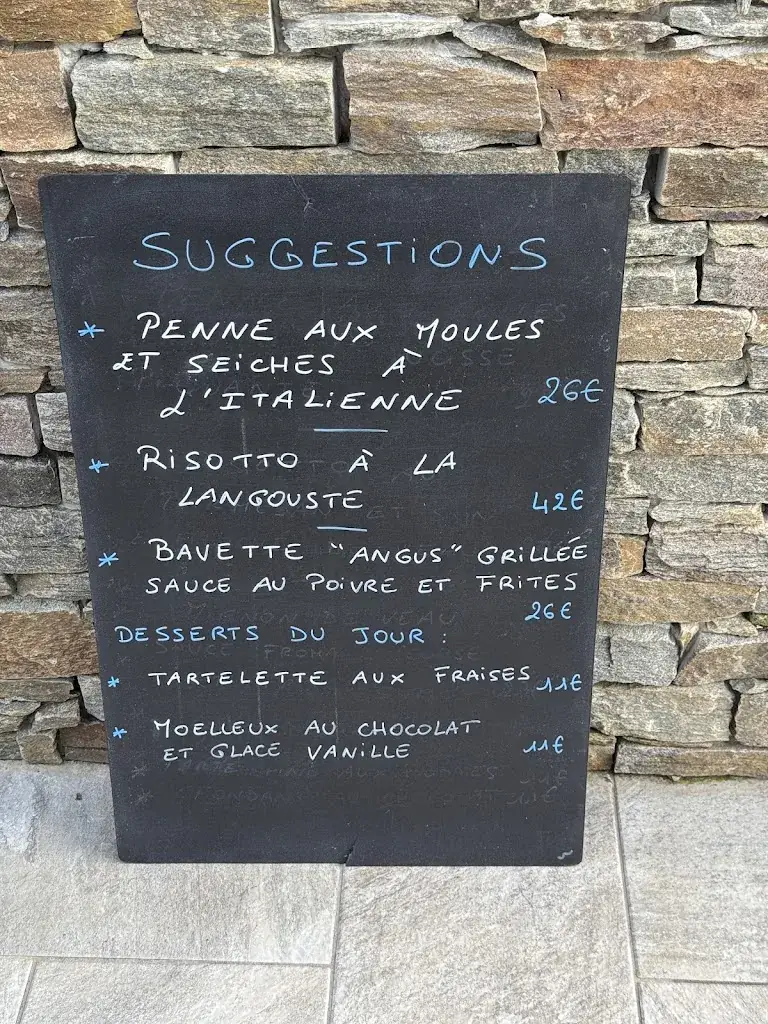 SUGGESTIONS
* PENNE AUX MOULES
ET SEICHES À
L'ITALIENNE 26€
* RISOTTO À LA
LANGOUSTE 42€
* BAVETTE "ANGUS" GRILLÉE
SAUCE AU POIVRE ET FRITES
26€
DESSERTS DU JOUR :
* TARTELETTE AUX FRAISES 11€
* MOELLEUX AU CHOCOLAT
ET GLACE VANILLE 11€